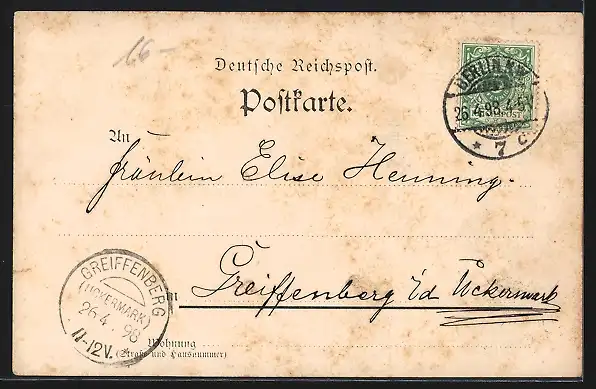 66-
Deutsche Reichspost.
Postkarte.
26 4.98. 4-5
* 7 c.
An
Fräulein Elise Henning.
GREIFFENBERG
(UCKERMARK)
26 4 98
11-12V.
in Greiffenberg i/d Uckermark
Wohnung
(Straße und Hausnummer)